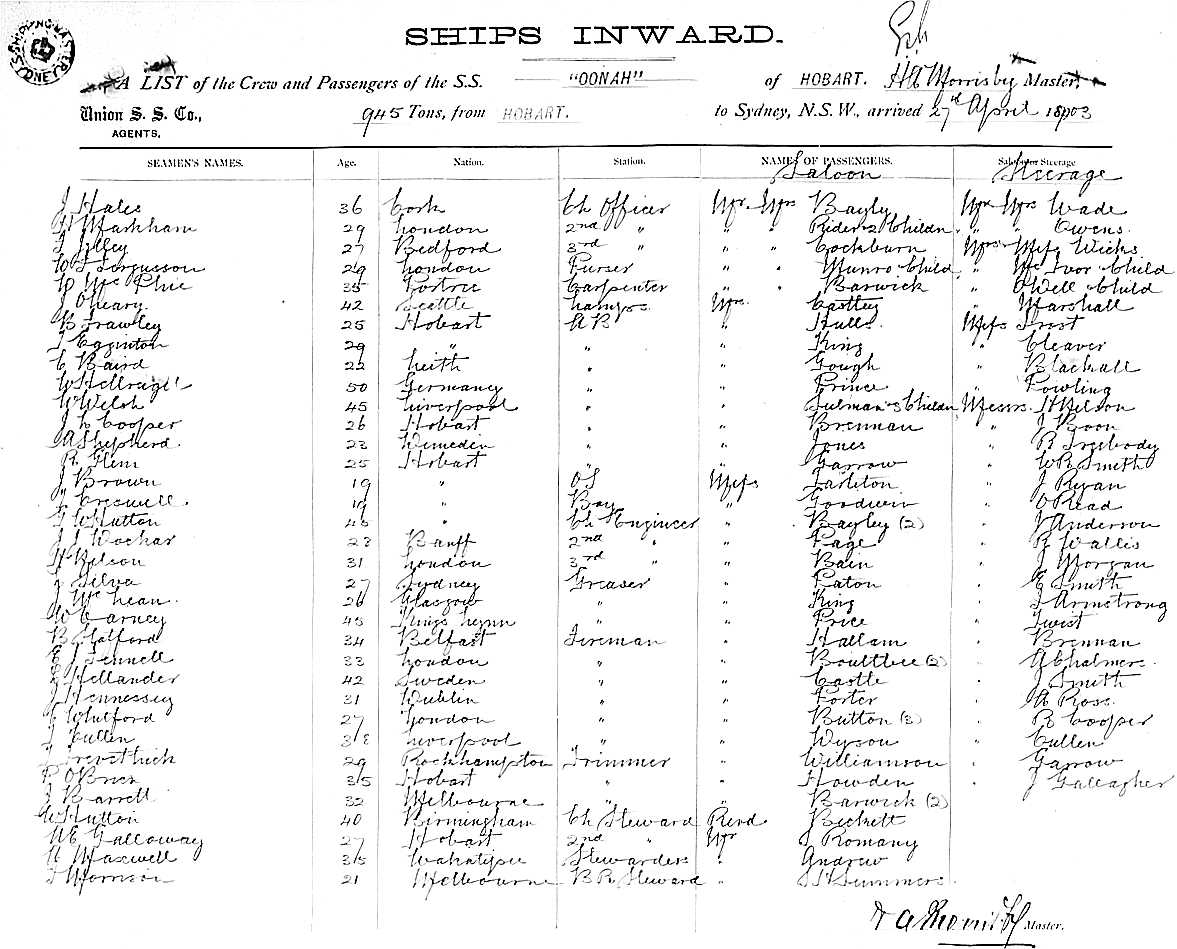 SHIPS INWARD.
A LIST of the Crew and Passengers of the S.S. "OONAH" of HOBART. Master,
Union S. S. Co., 945 Tons, from HOBART. to Sydney, N.S.W., arrived 27th April 1903
AGENTS,
SEAMEN'S NAMES. Age. Nation. Station. NAMES OF PASSENGERS. Saloon or Steerage
Saloon Steerage
J Hales 36 Cork Ch Officer Mr Mrs Bayly Mr Mrs Wade
Markham 29 London 2nd " " " Rider 2 Childn " " Owens
Lilley 27 Bedford 3rd " " " Cockburn Mrs Miss Wicks
Fergusson 29 London Purser " " Munro Child " McIvor Child
McPhie 35 Carpenter " " Barwick " Child
J O'Leary 42 Seattle Lamps Mrs Castley " Marshall
B Frawley 25 Hobart AB " Hulls Miss Frost
Egginton 29 " " " King " Cleaver
C Baird 22 Leith " " Gough " Blackall
50 Germany " " Prince " Fowling
W Welsh 45 Liverpool " " 3 Childn Messrs H Nilson
J L Cooper 26 Hobart " " Brennan " J Boon
A Shepherd 23 " " Jones " R Freebody
R Glem 25 Hobart " " Garrow " W R Smith
J Brown 19 " OS Miss Tarleton " J Ryan
J Creswell 19 " Boy " Goodwin " O Read
Hutton 45 " Ch Engineer " Bayley (2) " J Anderson
23 Banff 2nd " " Page " R Wallis
H Nilson 31 London 3rd " " Bain " J Morgan
J Silva 27 Sydney Greaser " Paton " E Smith
J McLean 26 Glasgow " " King " J Armstrong
W Carney 45 Kings Lynn " " Price " Twist
B Stafford 34 Belfast Fireman " Hallam " Brennan
J Fennell 33 London " " Boultbee (2) " A Chalmers
Hellander 42 Sweden " " Castle " J Smith
J Hennessey 31 Dublin " " Forter " A Ross
Whitford 27 London " " Button (3) " R Cooper
J Cullen 38 Liverpool " " Wyson " Cullen
Trevethick 29 Rockhampton Trimmer " Williamson " Garrow
P O'Brien 35 Hobart " " Howden " J Gallagher
J Barrett 32 Melbourne " " Barwick (2)
Hutton 40 Birmingham Ch Steward Revd Beckett
Galloway 27 Hobart 2nd " Mr J Romany
Maxwell 35 Wakatipu Stewardess " Andrew
Morrison 21 Melbourne B R Steward " Summers
Master.